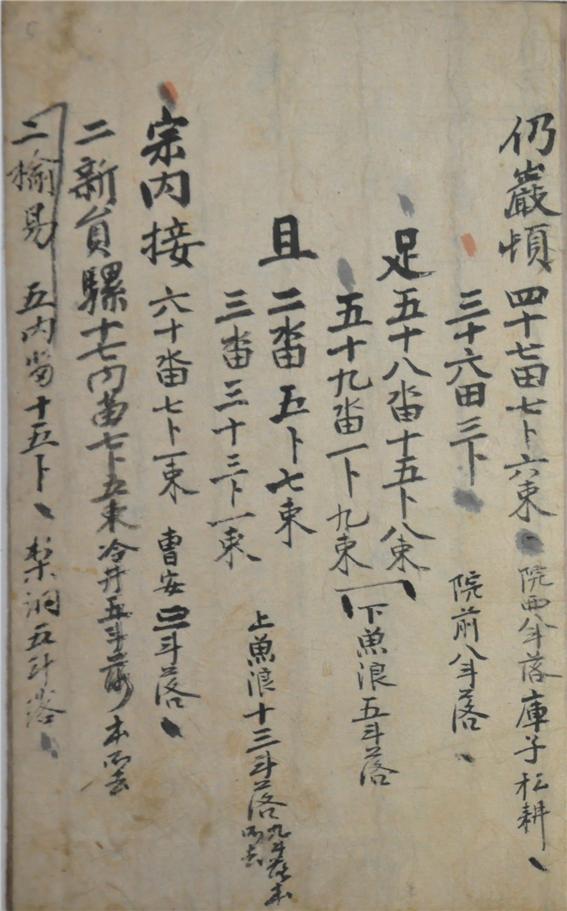 仍巖頓 四十七田七卜六束 院西八斗落庫子松耕
三十六田三卜 院前八斗落
足 五十八畓十五卜八束
五十九畓一卜九束 下魚浪五斗落
且 二畓五卜七束
三畓三十三卜一束 上魚浪十三斗落
宗內接 六十畓七卜一束 曹安三斗落
二新員騾十七內畓七卜五束 冷井五斗落
二楡易 五內畓十五卜 梨洞五斗落